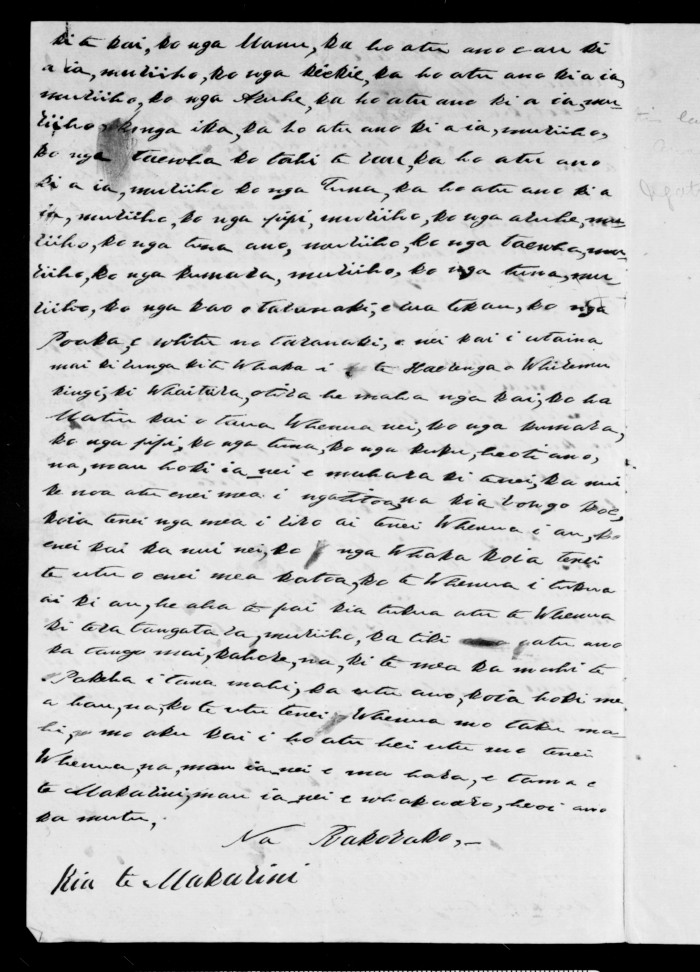 ki te kai, ko nga Manu, ka ho atu ano e au ki
a ia, muriiho, ko nga kiekie, ka ho atu ano ki a ia,
muriiho, ko nga Aruhe, ka ho atu ano ki a ia, mu-
riiho, ko nga ika, ka ho atu ano ki a ia, muriiho,
ko nga taewha ko tahi te rau, ka ho atu ano
ki a ia, muriiho ko nga Tuna, ka ho atu ano ki a
ia, muriiho, ko nga pipi, muriiho, ko nga aruhe, mu-
riiho, ko nga tuna ano, muriiho, ko nga taewha, mu-
riiho, ko nga kumara, muriiho, ko nga tuna, mu-
riiho, ko nga kao o taranaki, e wa tekau, ko nga
Poaka, e whitu no taranaki, o nei kai i utaina
mai ki runga ki te Whaka i te Haerenga o Whiremu
kingi, ki Whaitara, otira he maha nga kai, ko ha
Matu kai o tena Whenua nei, ko nga kumara,
ko nga pipi, ko nga tuna, ko nga kuku, heoti ano,
na, mau hoki ia_nei e mahara ki tenei, ka nui
ke noa atu enei mea i nga utoa, na kia rongo koe,
koia tenei nga mea i riro ai tenei Whenua i au, ko
enei kai ka nui nei, ko nga Whaka koia tenei
te utu o enei mea katoa, ko te Whenua i tukua
ai ki au, he aha te pai kia tukua atu te Whenua
ki tera tangata ra, muriiho, ka tiki atu ano
ka tango mai, kahore, na, ki te mea ka mahi te
Pakeha i tana mahi, ka utu ano, koia hoki me
a hau, na, ko te utu tenei Whenua mo taku ma-
hi, mo aku kai i ho atu hei utu mo tenei
Whenua, na, mau ia_nei e ma hara, e tama e
te Makarini, mau ia_nei e whakaaro, heoi ano
ka mutu,
Na Rakorako,_
Kia te Makarini